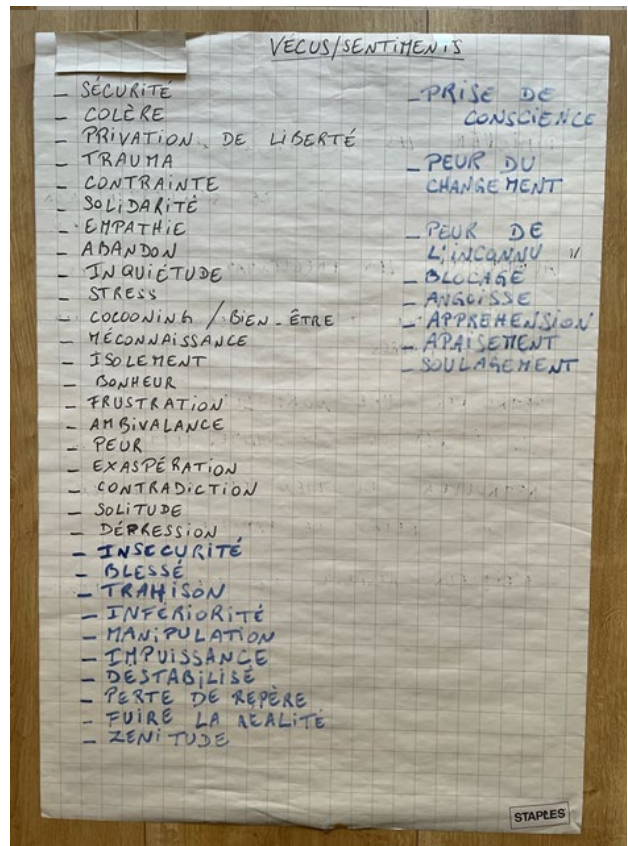 VÉCUS/SENTIMENTS
_ SÉCURITÉ
_ COLÈRE
_ PRIVATION DE LIBERTÉ
_ TRAUMA
_ CONTRAINTE
_ SOLIDARITÉ
_ EMPATHIE
_ ABANDON
_ INQUIÉTUDE
_ STRESS
_ COCOONING / BIEN-ÊTRE
_ MÉCONNAISSANCE
_ ISOLEMENT
_ BONHEUR
_ FRUSTRATION
_ AMBIVALANCE
_ PEUR
_ EXASPÉRATION
_ CONTRADICTION
_ SOLITUDE
_ DÉPRESSION
_ INSECURITÉ
_ BLESSÉ
_ TRAHISON
_ INFÉRIORITÉ
_ MANIPULATION
_ IMPUISSANCE
_ DESTABILISÉ
_ PERTE DE REPÈRE
_ FUIRE LA RÉALITÉ
_ ZENITUDE
_ PRISE DE
CONSCIENCE
_ PEUR DU
CHANGEMENT
_ PEUR DE
L'INCONNU
_ BLOCAGE
_ ANGOISSE
_ APPREHENSION
_ APAISEMENT
_ SOULAGEMENT
STAPLES